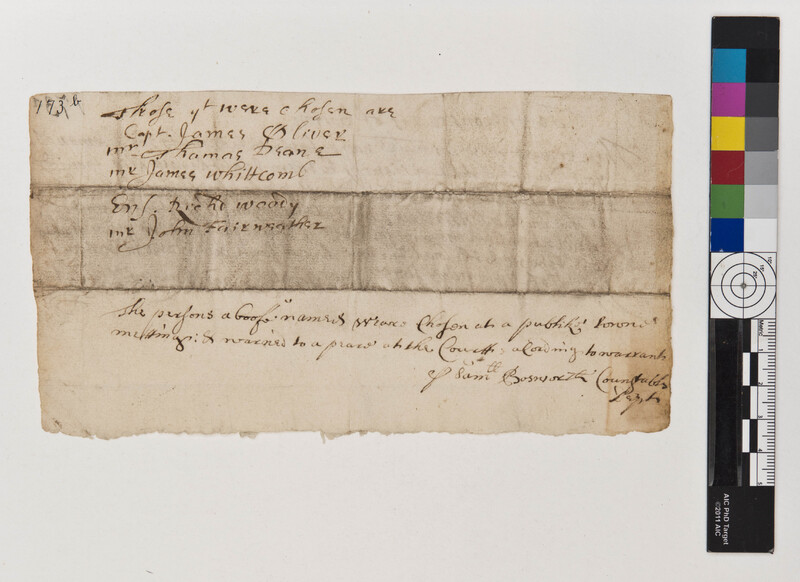 173 b
Those yt were chosen are
Capt. James Oliver
mr Thomas Deane
mr James Whittcomb
Ens. Richd Woody
mr John Fairweather
The persons aboofe named weare Chosen at a publike towne
metting: & warned to a peare at the Court acording to warrant
Samll Bosworth Counstable
AIC PhD Target
©2011 AIC